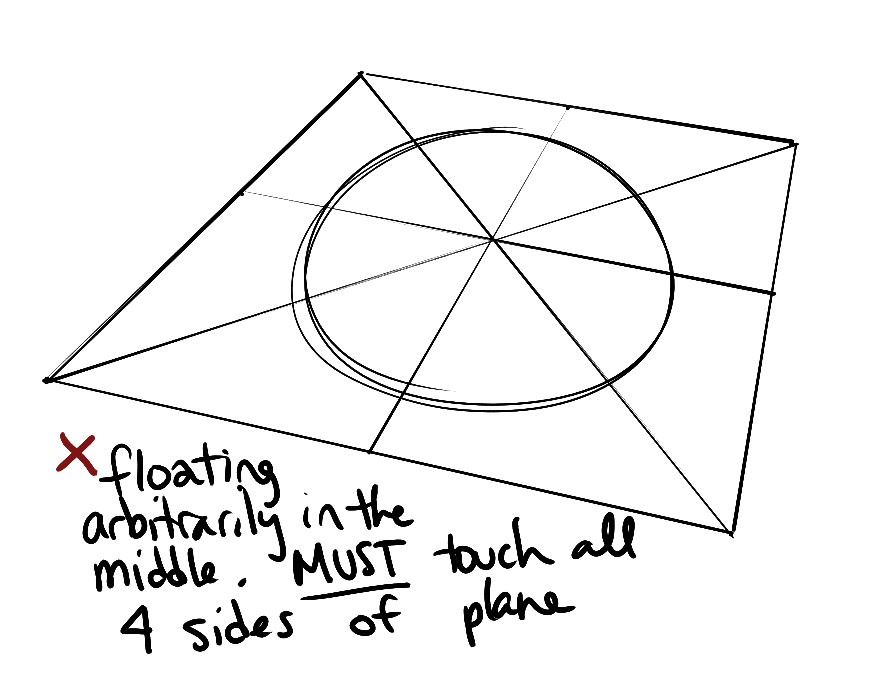 × floating
arbitrarily in the
middle. MUST touch all
4 sides of plane